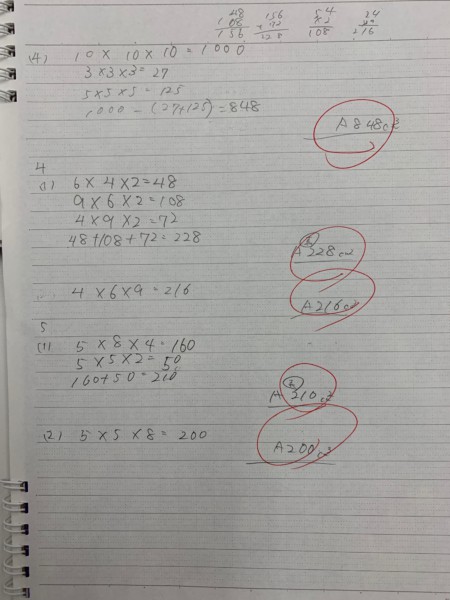 48
108
156
156
+ 72
228
54
×2
108
24
216
(4) 10 × 10 × 10 = 1000
3 × 3 × 3 = 27
5 × 5 × 5 = 125
1000 - (27+125) = 848
A 848cm³
4
(1) 6 × 4 × 2 = 48
9 × 6 × 2 = 108
4 × 9 × 2 = 72
48 + 108 + 72 = 228
A 228cm²
4 × 6 × 9 = 216
A 216cm³
5
(1) 5 × 8 × 4 = 160
5 × 5 × 2 = 50
160 + 50 = 210
A 210cm²
(2) 5 × 5 × 8 = 200
A 200cm³